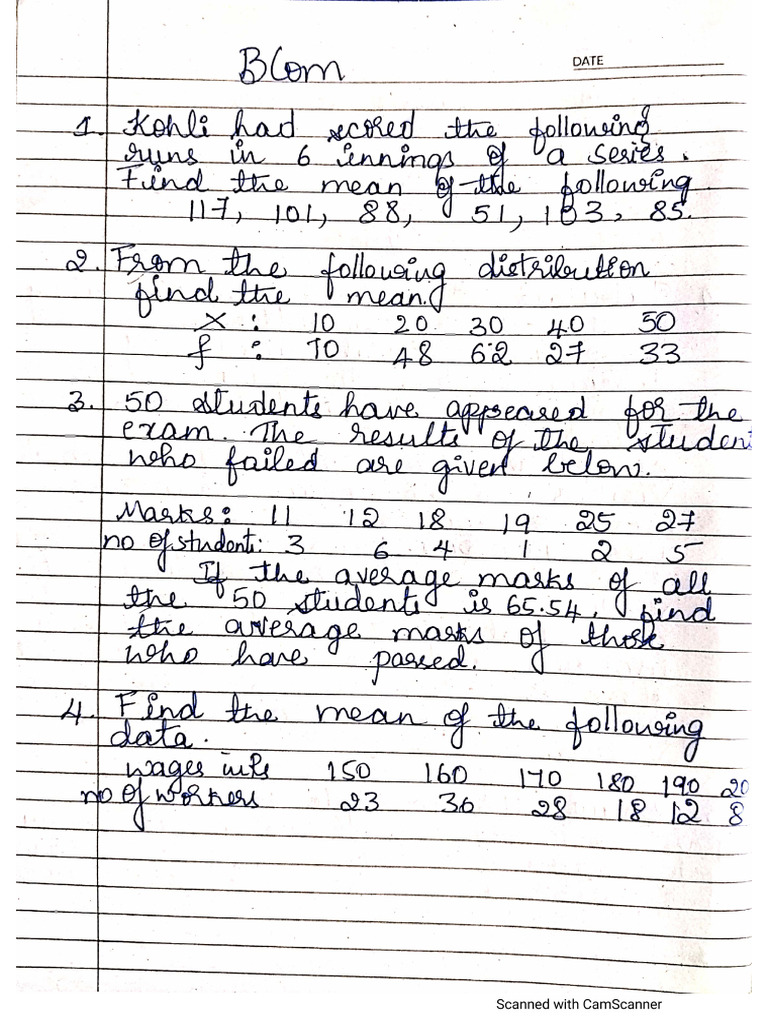 BCom
DATE
1. Kohli had scored the following
runs in 6 innings of a series.
Find the mean of the following
117, 101, 88, 51, 103, 85.
2. From the following distribution
find the mean.
X : 10 20 30 40 50
f : 10 48 62 27 33
3. 50 students have appeared for the
exam. The results of the studen
who failed are given below.
Marks: 11 12 18 19 25 27
no of student: 3 6 4 1 2 5
If the average marks of all
the 50 students is 65.54, find
the average marks of those
who have passed.
4. Find the mean of the following
data.
wages in Rs 150 160 170 180 190 20
no of workers 23 36 28 18 12 8
Scanned with CamScanner